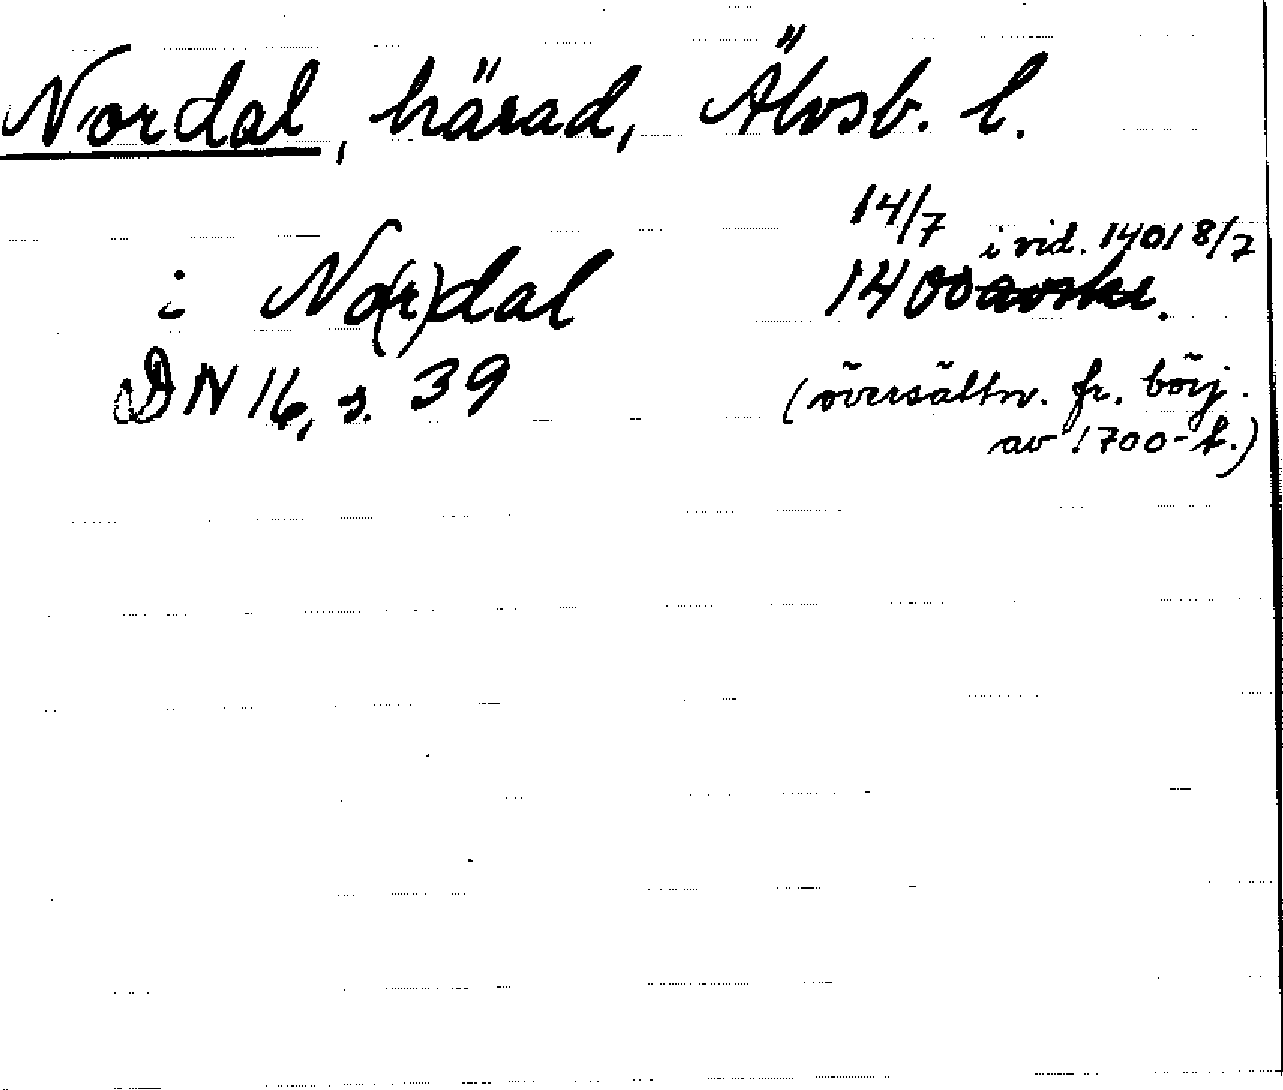 Nordal, härad, Älvsb. l.
i No(r)dal 14/7 1400 i vid. 1401 8/7
DN 16, s. 39 (översättn. fr. börj.
av 1700-t.)